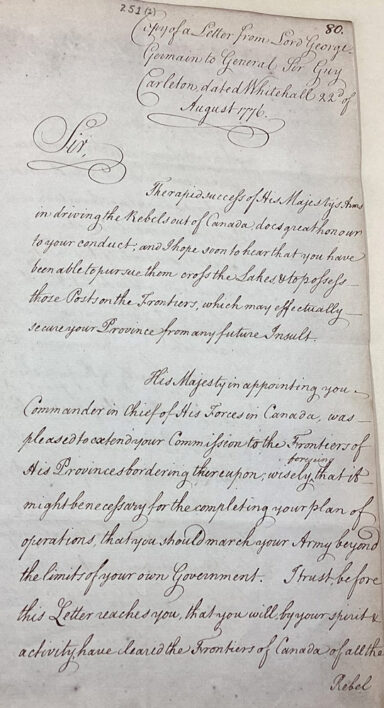 251(2)
80.
Copy of a Letter from Lord George
Germain to General Sir Guy
Carleton, dated Whitehall 22d of
August 1776.
Sir,
The rapid success of His Majesty's Arms
in driving the Rebels out of Canada does great honour
to your conduct; and I hope soon to hear that you have
been able to pursue them cross the Lakes & to possess
those Posts on the Frontiers, which may effectually
secure your Province from any future Insult.
His Majesty in appointing you
Commander in Chief of His Forces in Canada, was
pleased to extend your Commission to the Frontiers of
His Provinces bordering thereupon; wisely foreseeing that it
might be necessary for the completing your plan of
operations, that you should march your Army beyond
the limits of your own Government. I trust, before
this Letter reaches you, that you will, by your spirit &
activity have cleared the Frontiers of Canada of all the
Rebel